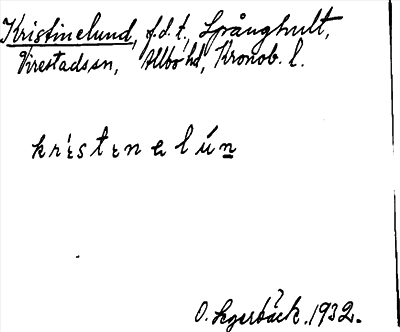 Kristinelund, f.d.t., Spånghult,
Virestads sn, Allbo hd, Kronob. l.
krɩ́stɩnelún
O. 1932.